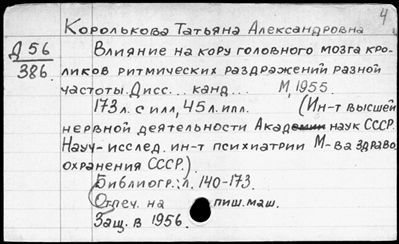 4
Королькова Татьяна Александровна
Д 56
386.
Влияние на кору головного мозга кро-
ликов ритмических раздражений разной
частоты. Дисс... канд... М, 1955.
173 л. с илл, 45 л. илл. (Ин-т высшей
нервной деятельности Академии наук СССР.
Науч-исслед. ин-т психиатрии М-ва здраво
охранения СССР.)
Библиогр.: л. 140-173.
Отпеч. на пиш. маш.
Защ. в 1956.